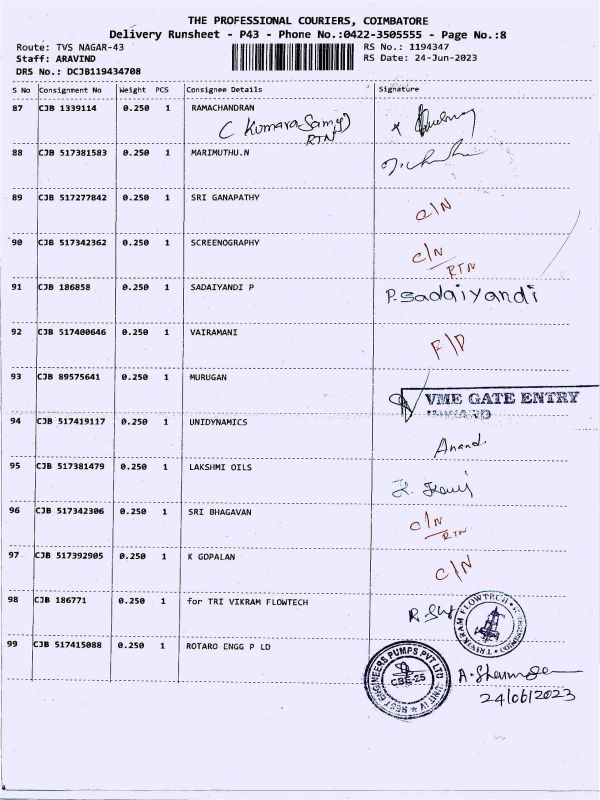 THE PROFESSIONAL COURIERS, COIMBATORE
Delivery Runsheet - P43 - Phone No.:0422-3505555 - Page No.:8
Route: TVS NAGAR-43 RS No.: 1194347
Staff: ARAVIND RS Date: 24-Jun-2023
DRS No.: DCJB119434708
S No Consignment No Weight PCS Consignee Details Signature
87 CJB 1339114 0.250 1 RAMACHANDRAN
(Kumara Samy)
RTN
88 CJB 517381583 0.250 1 MARIMUTHU.N
89 CJB 517277842 0.250 1 SRI GANAPATHY
C/N
90 CJB 517342362 0.250 1 SCREENOGRAPHY
C/N
RTN
91 CJB 186858 0.250 1 SADAIYANDI P
P.Sadaiyandi
92 CJB 517400646 0.250 1 VAIRAMANI
F/D
93 CJB 89575641 0.250 1 MURUGAN
VME GATE ENTRY
94 CJB 517419117 0.250 1 UNIDYNAMICS
Anand
95 CJB 517381479 0.250 1 LAKSHMI OILS
96 CJB 517342306 0.250 1 SRI BHAGAVAN
C/N
RTN
97 CJB 517392905 0.250 1 K GOPALAN
C/N
98 CJB 186771 0.250 1 for TRI VIKRAM FLOWTECH
TRIVIKRAM FLOWTECH
99 CJB 517415088 0.250 1 ROTARO ENGG P LD
BEST ENGINEERS PUMPS PVT LTD UNIT IV
CBE-25
24/06/2023